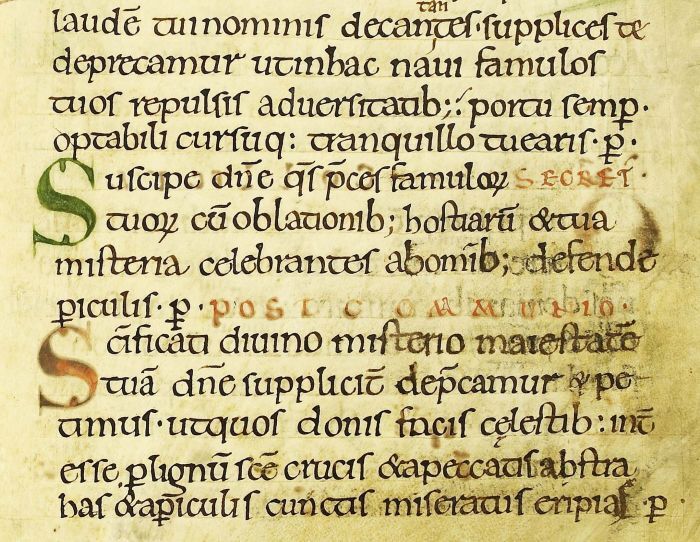 tan
laudē tui nominis decantes · supplices te
deprecamur ut in hac naui famulos
tuos repulsis aduersitatib; portu semp̲ ·
optabili cursuq: tranquillo tuearis · p̲ ·
Suscipe dn̄e q̄s p̄ces famuloꝝ SECRET ·
tuoꝝ cū oblationib; hostiarū & tua
misteria celebrantes ab omīb; defende
ꝑiculis · p̲ · POSTCOMMUNIO ·
Sc̄ificati diuino misterio maiestatē
tuā dn̄e suppliciť dep̄camur & pe
timus · ut quos donis facis cęlestib: int̄
esse, ꝑ lignū scē crucis & a peccatis abstra
has & a ꝑiculis cunctis miseratus eripias · p̲